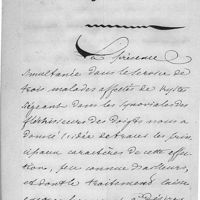 La présence
simultanée dans le service de
trois malades affectés de kystes
siégeant dans les synoviales des
fléchisseurs des doigts nous a
donné l'idée de tracer les prin-
cipaux caractères de cette affec-
tion, peu connue d'ailleurs,
et dont le traitement laisse
à désirer